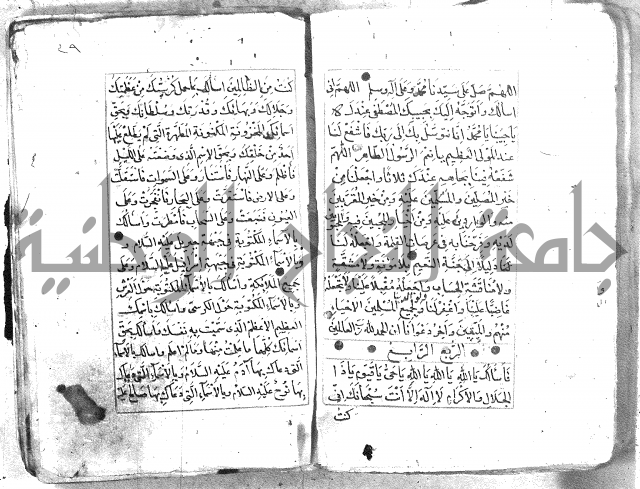 اللهم صل على سيدنا محمد وعلى آله وسلم اللهم اني
اسالك واتوجه اليك بحبيبك المصطفى عندك
يا حبيبنا يا محمد انا نتوسل بك الى ربك فاشفع لنا
عند المولى العظيم يا نعم الرسول الطاهر اللهم
شفعه فينا بجاهه عندك ثلاثا واجعلنا من
خير المصلين والمسلمين عليه ومن خير المقربين
منه والواردين عليه ومن اخيار المحبين فيه والمحبوبين
لديه وفرحنا به في عرصات القيمة واجعله لنا
دليلا الى جنة النعيم بلا مؤنة ولا مشقة
ولا مناقشة الحساب واجعله مقبلا علينا ولا تجعله
غاضبا علينا واغفر لنا ولجميع المسلمين الاحياء
منهم والميتين وآخر دعوانا ان الحمد لله رب العالمين
الربع الرابع
فاسالك يا الله يا الله يا الله يا حي يا قيوم يا ذا
الجلال والاكرام لا اله الا انت سبحانك اني
كنت
٤٩
كنت من الظالمين اسالك بما حمل كرسيك من عظمتك
وجلالك وبهائك وقدرتك وسلطانك وبحق
اسمائك المخزونة المكنونة المطهرة التي لم يطلع عليها
احد من خلقك وبحق الاسم الذي وضعته على الليل
فاظلم وعلى النهار فاستنار وعلى السموات فاستقلت
وعلى الارض فاستقرت وعلى البحار فانفجرت وعلى
العيون فنبعت وعلى السحاب فامطرت واسالك
بالاسماء المكتوبة في جبهة جبريل عليه السلام
وبالاسماء المكتوبة في جبهة اسرافيل عليه السلام وعلى
جميع الملائكة واسالك بالاسماء المكتوبة حول العرش
وبالاسماء المكتوبة حول الكرسي واسالك باسمك
العظيم الاعظم الذي سميت به نفسك واسالك بحق
اسمائك كلها ما علمت منها وما لم اعلم واسالك بالاسماء
التي دعاك بها آدم عليه السلام وبالاسماء التي دعاك
بها نوح عليه السلام وبالاسماء التي دعاك بها صالح
جامعة النجاح الوطنية